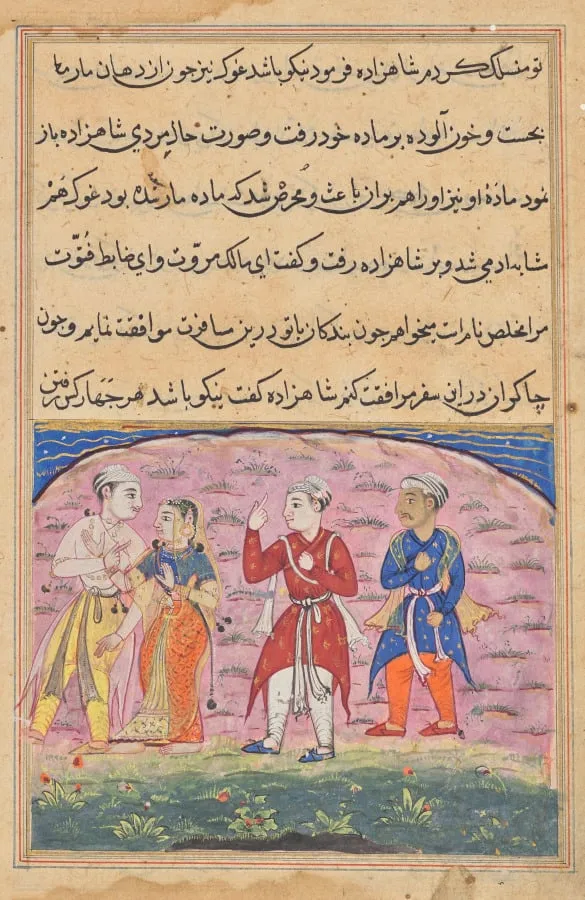 تو منسلک کردم شاهزاده فرمود نیکو باشد غوک نیز جون از دهان مار
بجست و خون آلوده بر ماده خود رفت و صورت حال مردی شاهزاده باز
نمود مادهٔ او نیز اورا هم بران باعث و محرض شد که ماده مار شده بود غوک هم
شابه ادمی شد و بر شاهزاده رفت و کفت ای مالک مروّت و ای ضابط فتوّت
مرا مخلص نام است میخواهم جون بندکان با تو درین مسافرت موافقت نمایم و جون
چاکران در این سفر مرافقت کنم شاهزاده کفت نیکو باشد هر جهار کس رفتن